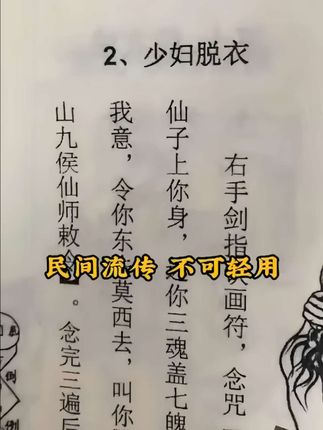 2、少妇脱衣
右手剑指
画符，念咒
仙子上你身，
你三魂盖七魄
我意，令你东
莫西去，叫你
山九侯仙师敕
。念完三遍后
民间流传 不可轻用
倒